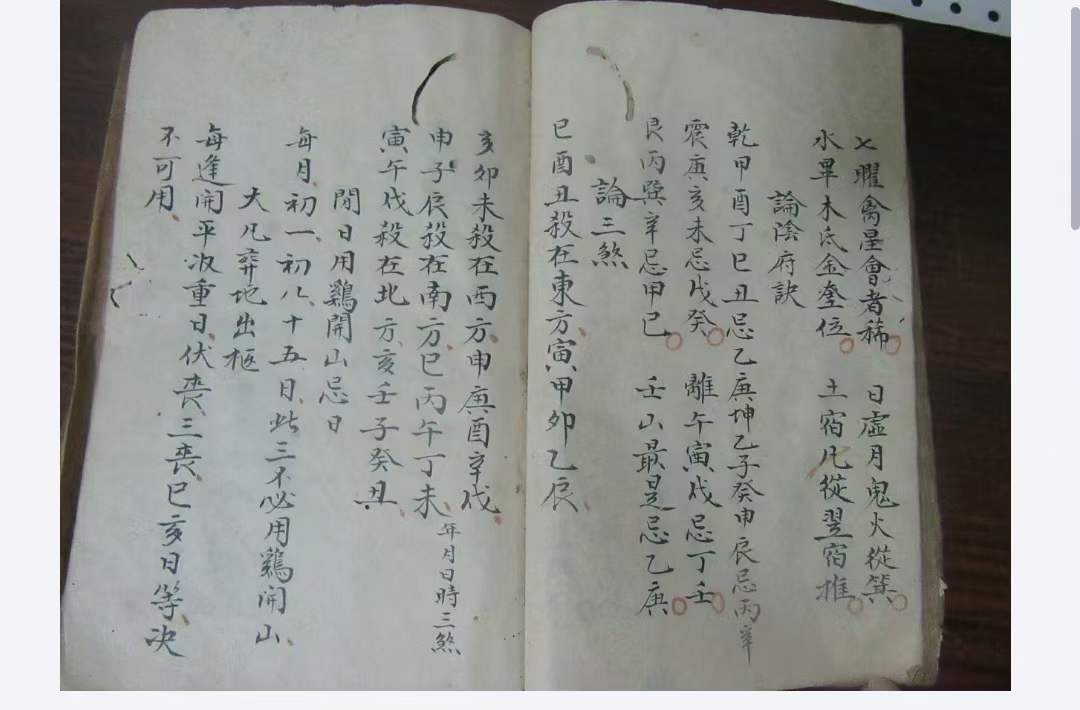 七曜禽星會者稀 日虛月鬼火從箕
水畢木氐金奎位 土宿凡從翌宿推
論陰府訣
乾甲酉丁巳丑忌乙庚坤乙子癸申辰忌丙辛
震庚亥未忌戊癸 離午寅戌忌丁壬
艮丙巽辛忌甲己 壬山最是忌乙庚
論三煞
巳酉丑殺在東方寅甲卯乙辰
亥卯未殺在西方申庚酉辛戌
申子辰殺在南方巳丙午丁未 年月日時三煞
寅午戌殺在北方亥壬子癸丑
開日用鷄開山忌日
每月初一初八十五日此三不必用鷄開山
大凡葬地出柩
每逢開平收重日伏喪三喪巳亥日等決
不可用